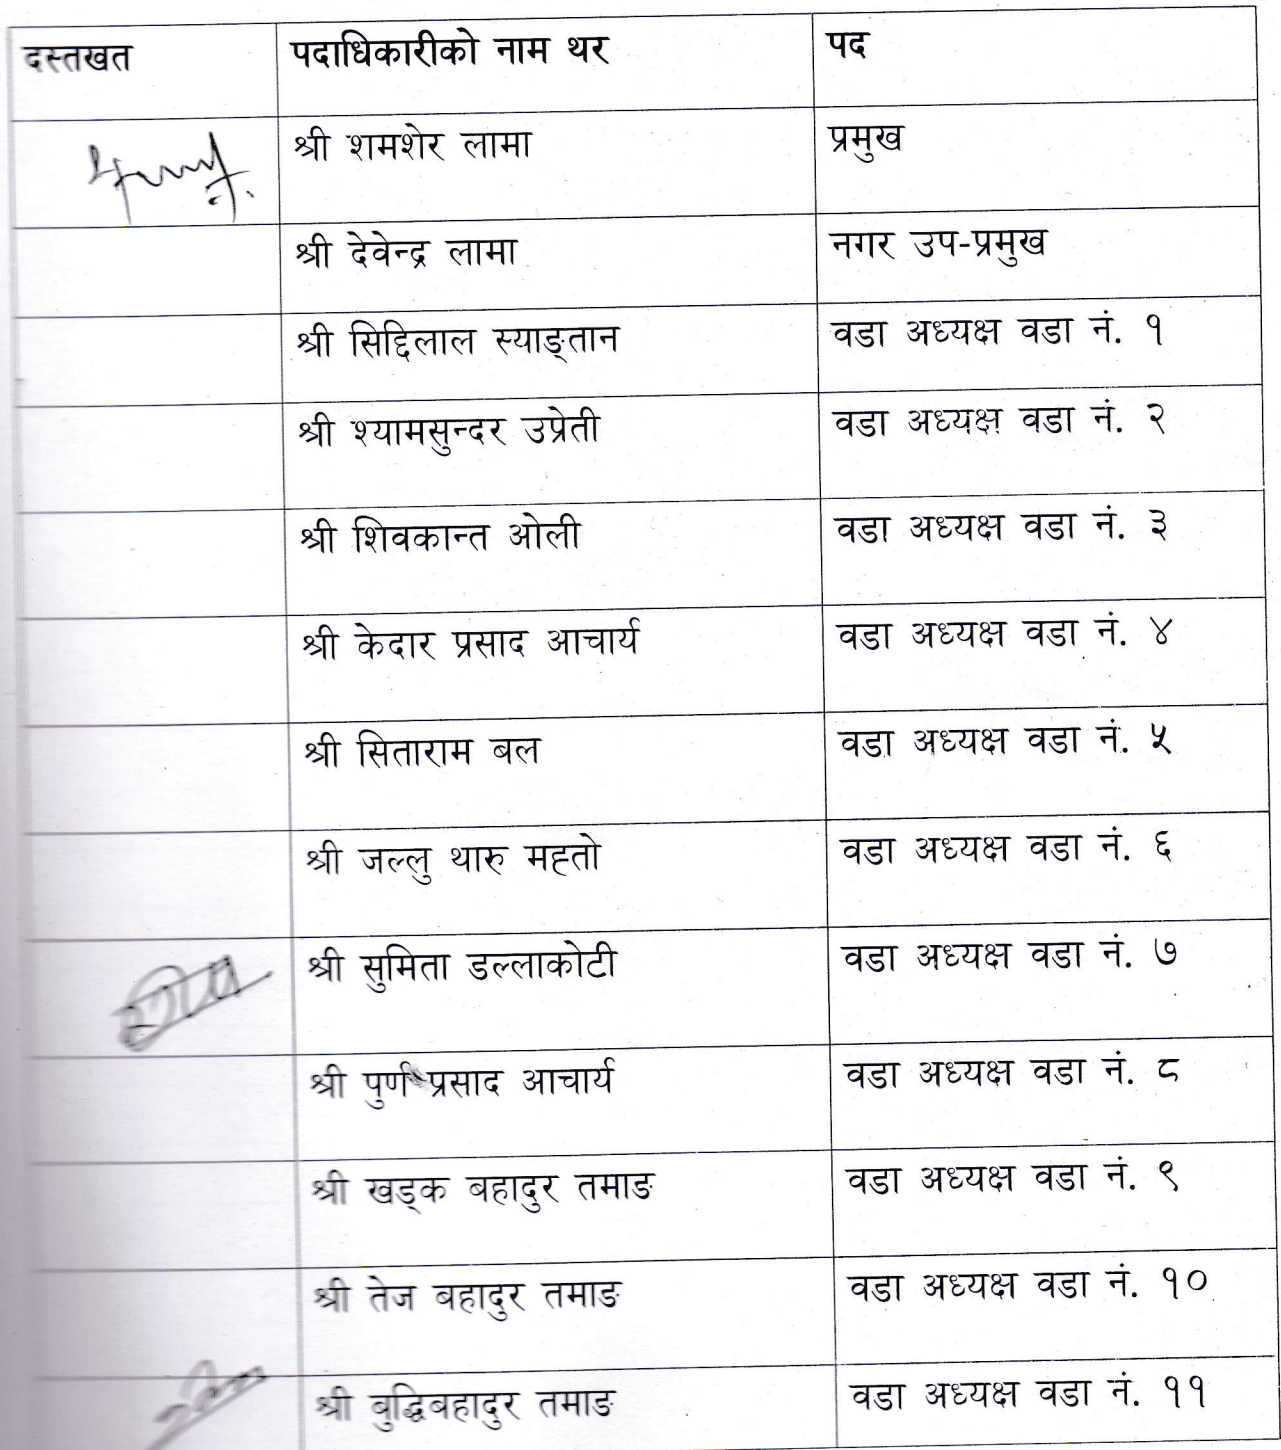 दस्तखत पदाधिकारीको नाम थर पद
श्री शमशेर लामा प्रमुख
श्री देवेन्द्र लामा नगर उप-प्रमुख
श्री सिद्दिलाल स्याङ्तान वडा अध्यक्ष वडा नं. १
श्री श्यामसुन्दर उप्रेती वडा अध्यक्ष वडा नं. २
श्री शिवकान्त ओली वडा अध्यक्ष वडा नं. ३
श्री केदार प्रसाद आचार्य वडा अध्यक्ष वडा नं. ४
श्री सिताराम बल वडा अध्यक्ष वडा नं. ५
श्री जल्लु थारु महतो वडा अध्यक्ष वडा नं. ६
श्री सुमिता डल्लाकोटी वडा अध्यक्ष वडा नं. ७
श्री पुर्ण प्रसाद आचार्य वडा अध्यक्ष वडा नं. ८
श्री खड्क बहादुर तमाङ वडा अध्यक्ष वडा नं. ९
श्री तेज बहादुर तमाङ वडा अध्यक्ष वडा नं. १०
श्री बुद्धिबहादुर तमाङ वडा अध्यक्ष वडा नं. ११